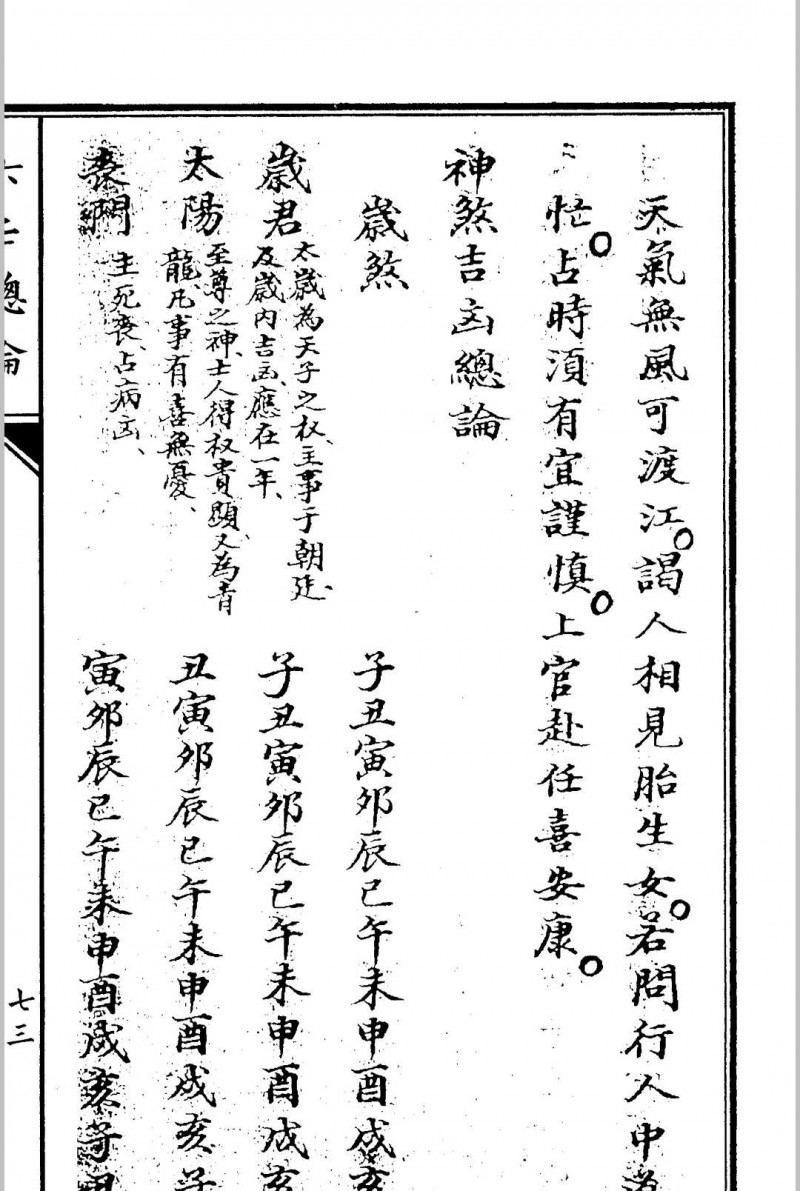 天氣無風可渡江。謁人相見胎生女。若問行人中
忙。占時須有宜謹慎。上官赴任喜安康。
神煞吉凶總論
歲煞 子丑寅卯辰巳午未申酉戌亥
歲君 太歲為天子之权、主事于朝廷、
及歲內吉凶、應在一年、
子丑寅卯辰巳午未申酉戌亥
太陽 至尊之神、士人得权貴顯、又為青
龍、凡事有喜無憂、
丑寅卯辰巳午未申酉戌亥子
喪門 主死喪、占病凶、
寅卯辰巳午未申酉戌亥子
總論
七三